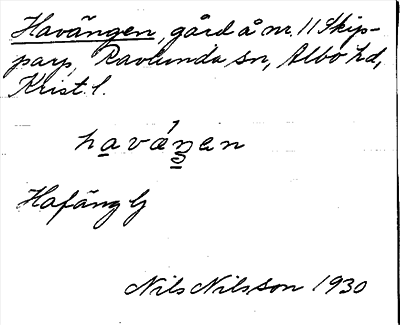 Havängen, gård å nr 11 Skip-
parp, Ravlunda sn, Albo hd,
Krist. l.
havángen
Hafäng G
Nils Nilsson 1930